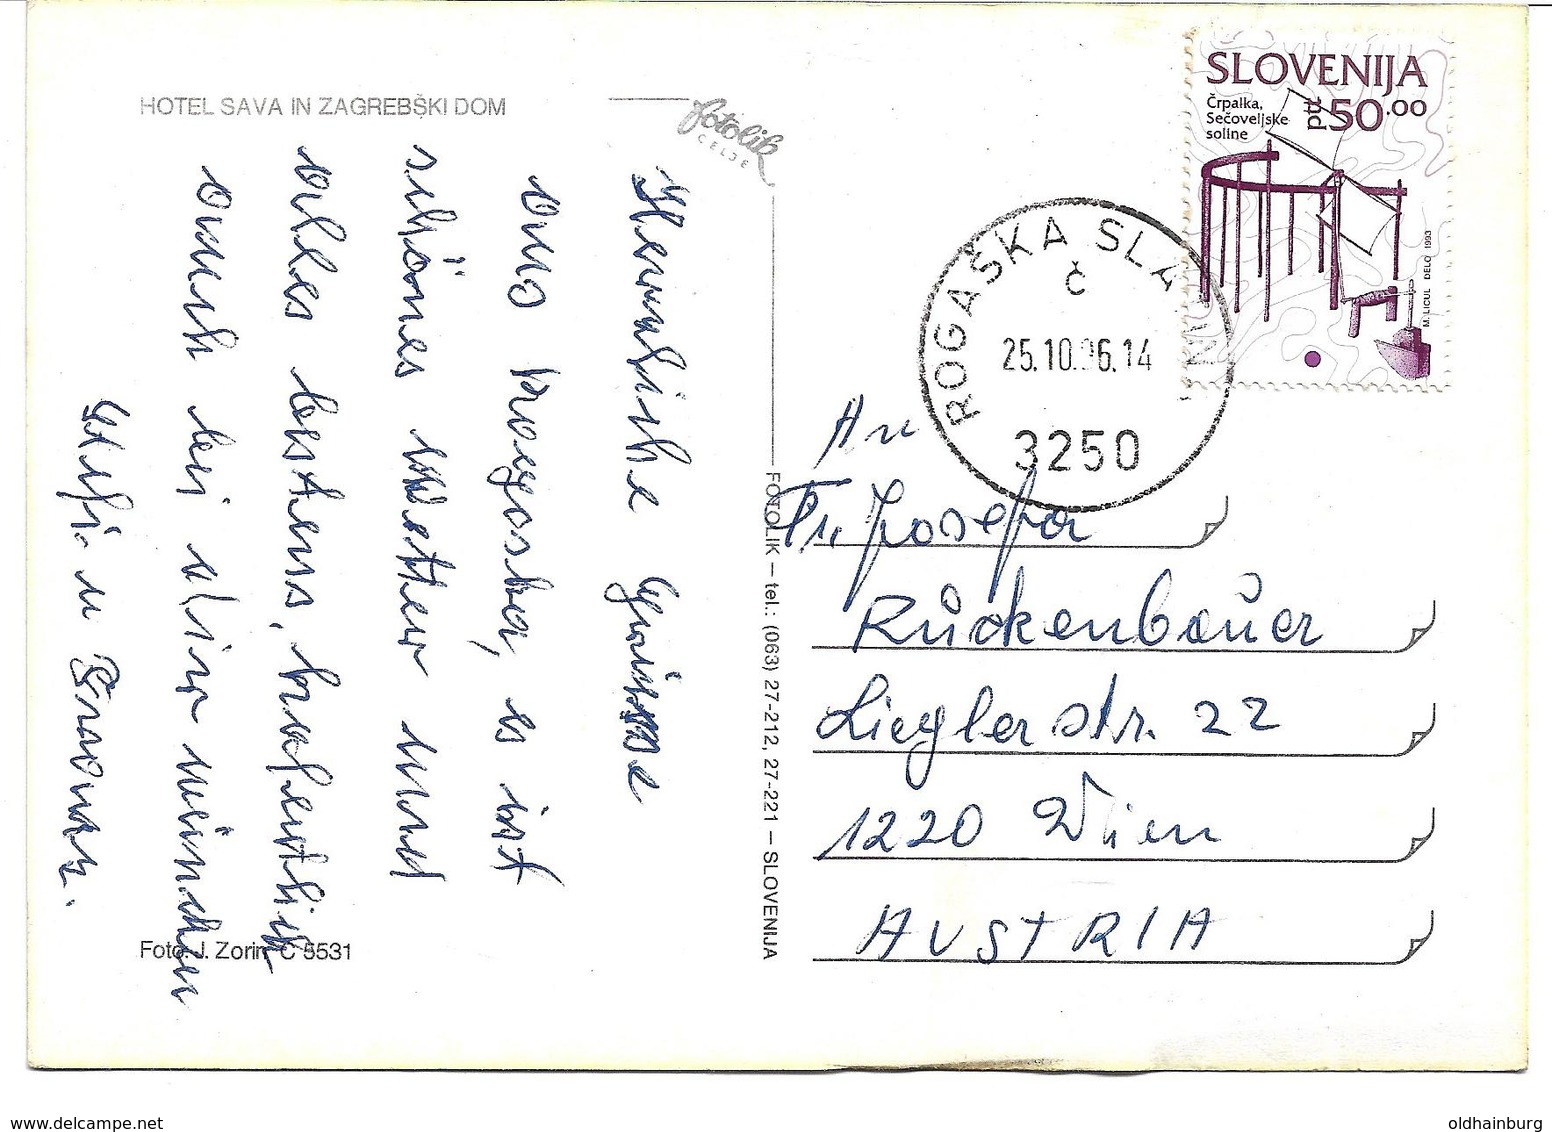 HOTEL SAVA IN ZAGREBŠKI DOM
fotolik
CELJE
SLOVENIJA
Črpalka,
Sečoveljske
soline
pd 50.00
M. LICUL DELO 1993
ROGAŠKA SLA NIN
č
25.10.96.14
3250
Herzliche Grüsse
aus Rogaska, es ist
schönes Wetter und
alles bestens, hoffentlich
auch bei
u
An
Fr. Josefa
Rückenbauer
Zieglerstr. 22
1220 Wien
AUSTRIA
FOTOLIK – tel.: (063) 27-212, 27-221 – SLOVENIJA
Foto: J. Zorin C 5531
oldhainburg
www.delcampe.net